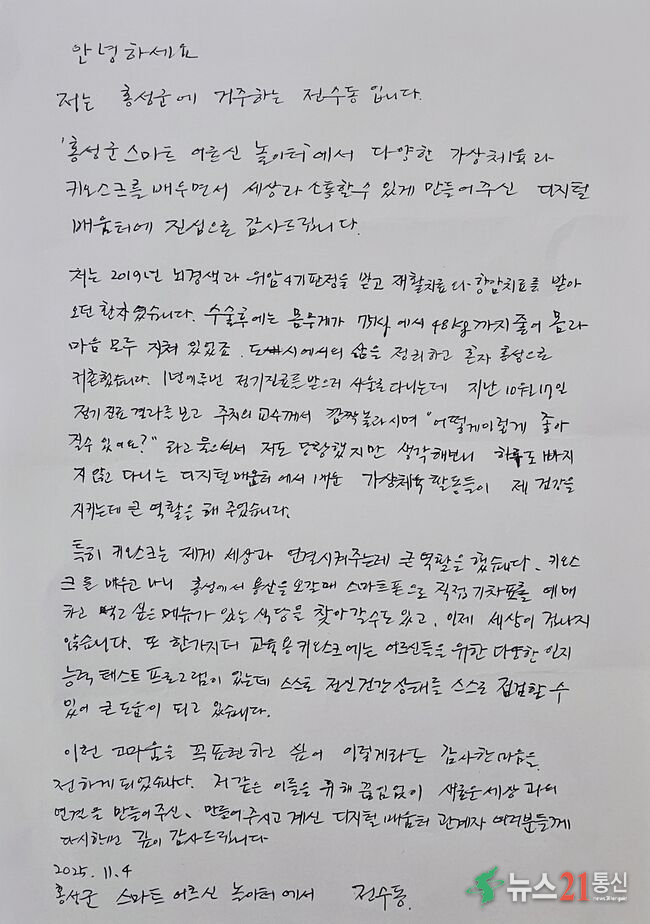 안녕하세요
저는 홍성군에 거주하는 전수동입니다.
'홍성군 스마트 어르신 놀이터'에서 다양한 가상체육과
키오스크를 배우면서 세상과 소통할수 있게 만들어주신 디지털
배움터에 진심으로 감사드립니다.
저는 2019년 뇌경색과 위암4기판정을 받고 재활치료와 항암치료를 받아
오던 환자였습니다. 수술후에는 몸무게가 75kg에서 48kg까지 줄어 몸과
마음 모두 지쳐 있었죠. 도시에서의 삶을 정리하고 혼자 홍성으로
귀촌했습니다. 1년에 두번 정기진료를 받으러 서울로 다니는데 지난 10월 17일
정기진료 결과를 보고 주치의 교수께서 깜짝놀라시며 "어떻게 이렇게 좋아
질수 있어요?" 라고 물으셔서 저도 당황했지만 생각해보니 하루도 빠지
지 않고 다니는 디지털배움터에서 배운 가상체육 활동들이 제 건강을
지키는데 큰 역할을 해 주었습니다.
특히 키오스크는 제게 세상과 연결시켜주는데 큰 역할을 했습니다. 키오스
크를 배우고 나니 홍성에서 용산을 오갈때 스마트폰으로 직접 기차표를 예매
하고 먹고 싶은 메뉴가 있는 식당을 찾아갈수도 있고, 이제 세상이 겁나지
않습니다. 또 한가지더 교육용키오스크에는 어르신들을 위한 다양한 인지
능력 테스트 프로그램이 있는데 스스로 정신건강상태를 스스로 점검할 수
있어 큰 도움이 되고 있습니다.
이런 고마움을 꼭 표현하고 싶어 이렇게라도 감사한마음을
전하게 되었습니다. 저 같은 이들을 위해 끊임없이 새로운세상과의
연결을 만들어주신, 만들어 주시고 계신 디지털배움터 관계자 여러분들께
다시한번 깊이 감사드립니다
2025. 11. 4
홍성군 스마트 어르신 놀이터에서 전수동.
뉴스21통신